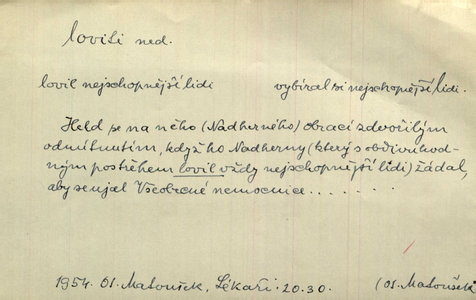 loviti ned.
lovil nejschopnější lidi    vybíral si nejschopnější lidi.
Held se na něho (Nadherného) obrací zdvořilým
odmítnutím, když ho Nadherny (který s obdivuhod-
ným postřehem lovil vždy nejschopnější lidi) žádal,
aby se ujal Všeobecné nemocnice . . . . . .
1954 Ol. Matoušek, Lékaři. 20.30.    (Ol. Matoušek